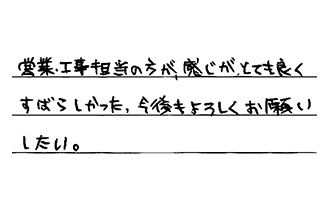 営業、工事担当の方が、感じが、とても良く
すばらしかった、今後もよろしくお願い
したい。